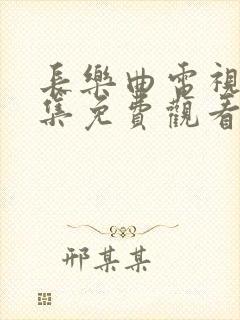 長樂曲電視
集免費觀看
邢某某